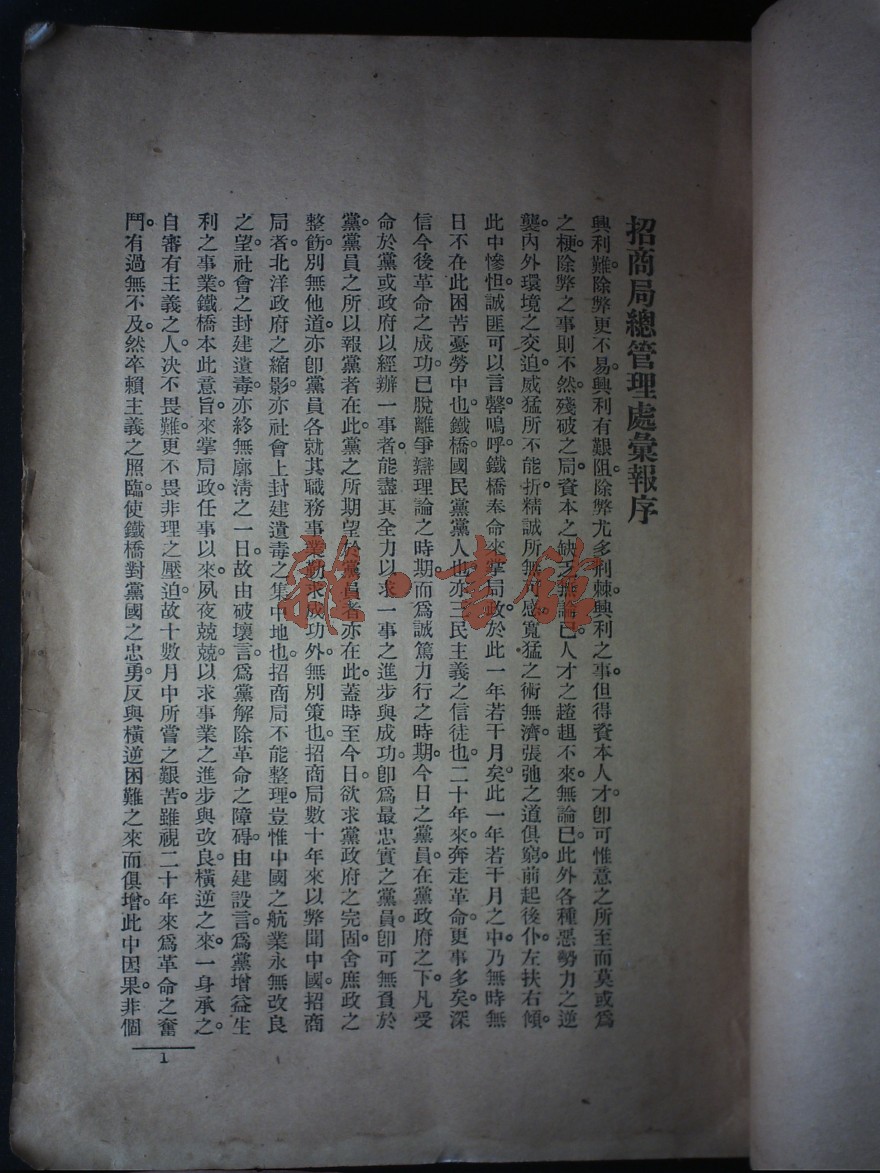 招商局總管理處彙報序
興利難。除弊更不易。興利有艱阻。除弊尤多荆棘。興利之事。但得資本人才。卽可惟意之所至而莫或爲
之梗。除弊之事則不然。殘破之局。資本之缺乏無論已。人才之趑趄不來。無論已。此外各種惡勢力之逆
襲。內外環境之交迫。威猛所不能折。精誠所無可感。寬猛之術無濟。張弛之道俱窮。前起後仆。左扶右傾。
此中慘怛。誠匪可以言罄。嗚呼。鐵橋奉命來掌局政。於此一年若干月矣。此一年若干月之中。乃無時無
日不在此困苦憂勞中也。鐵橋國民黨黨人也。亦三民主義之信徒也。二十年來。奔走革命。更事多矣。深
信今後革命之成功。已脫離爭辯理論之時期。而爲誠篤力行之時期。今日之黨員。在黨政府之下。凡受
命於黨或政府以經辦一事者。能盡其全力以求一事之進步與成功。卽爲最忠實之黨員。卽可無負於
黨。黨員之所以報黨者在此。黨之所期望於黨員者亦在此。蓋時至今日。欲求黨政府之完固。舍庶政之
整飭。別無他道。亦卽黨員各就其職務事業勤求成功外。無別策也。招商局數十年來以弊聞中國。招商
局者。北洋政府之縮影。亦社會上封建遺毒之集中地也。招商局不能整理。豈惟中國之航業永無改良
之望。社會之封建遺毒。亦終無廓淸之一日。故由破壞言。爲黨解除革命之障碍。由建設言。爲黨增益生
利之事業。鐵橋本此意旨。來掌局政。任事以來。夙夜兢兢。以求事業之進步與改良。橫逆之來。一身承之。
自審有主義之人。决不畏難。更不畏非理之壓迫。故十數月中所嘗之艱苦。雖視二十年來爲革命之奮
鬥。有過無不及。然卒賴主義之照臨。使鐵橋對黨國之忠勇。反與橫逆困難之來而俱增。此中因果。非個
1
雜·書館